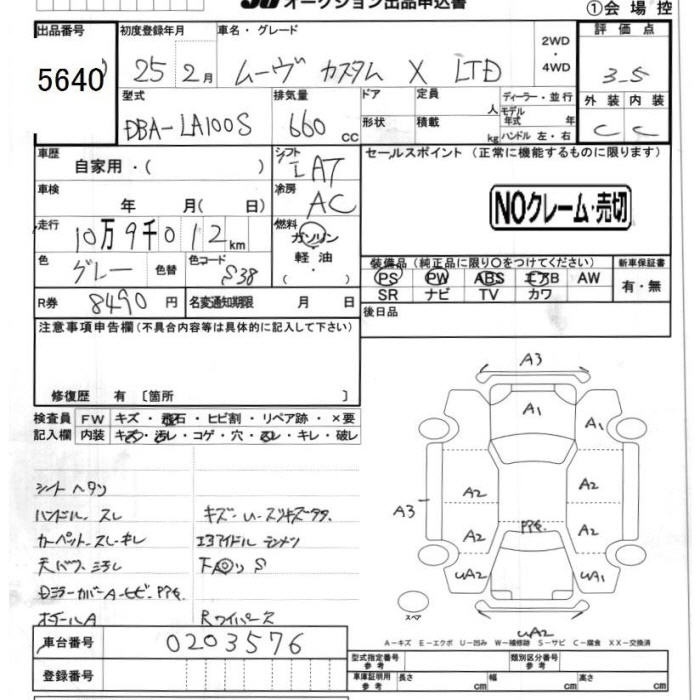 オークション出品申込書 ①会場控
出品番号 初度登録年月 車名・グレード 2WD・4WD 評価点
5640 25年 2月 ムーヴ カスタム X LTD 3.5
型式 排気量 ドア 定員 ディーラー・並行 外装 内装
DBA-LA100S 660cc 形状 積載 人 kg モデル年式 年 ハンドル 左・右 C C
車歴 自家用・( ) シフト IAT セールスポイント (正常に機能するものに限ります)
車検 年 月( 日) 冷房 AC NOクレーム・売切
走行 10万9千012km 燃料 ガソリン 軽油 ( ・ )
色 グレー 色替 色コード S38 装備品 (純正品に限り○をつけてください) 新車保証書
PS PW ABS エアB AW 有・無
R券 8490円 名変通知期限 月 日 SR ナビ TV カワ
注意事項申告欄(不具合内容等は具体的に記入して下さい) 後日品
修復歴 有 〔箇所 〕
検査員 FW キズ・飛石・ヒビ割・リペア跡・×要
記入欄 内装 キズ・汚レ・コゲ・穴・スレ・キレ・破レ
シート ヘタリ
ハンドル スレ
カーペット スレ・キレ
エアアイドル
Dミラーカバー A・ヒビ
Rワイパーレス
A3
A1
A1
A2
A2
A3
A2
A2
UA2
UA1
スペア
UA2
A-キズ E-エクボ U-凹み W-補修跡 S-サビ C-腐食 XX-交換済
車台番号 0203576
登録番号
型式指定番号 参考 類別区分番号 参考
車庫証明用 参考 長さ cm 幅 cm 高さ cm